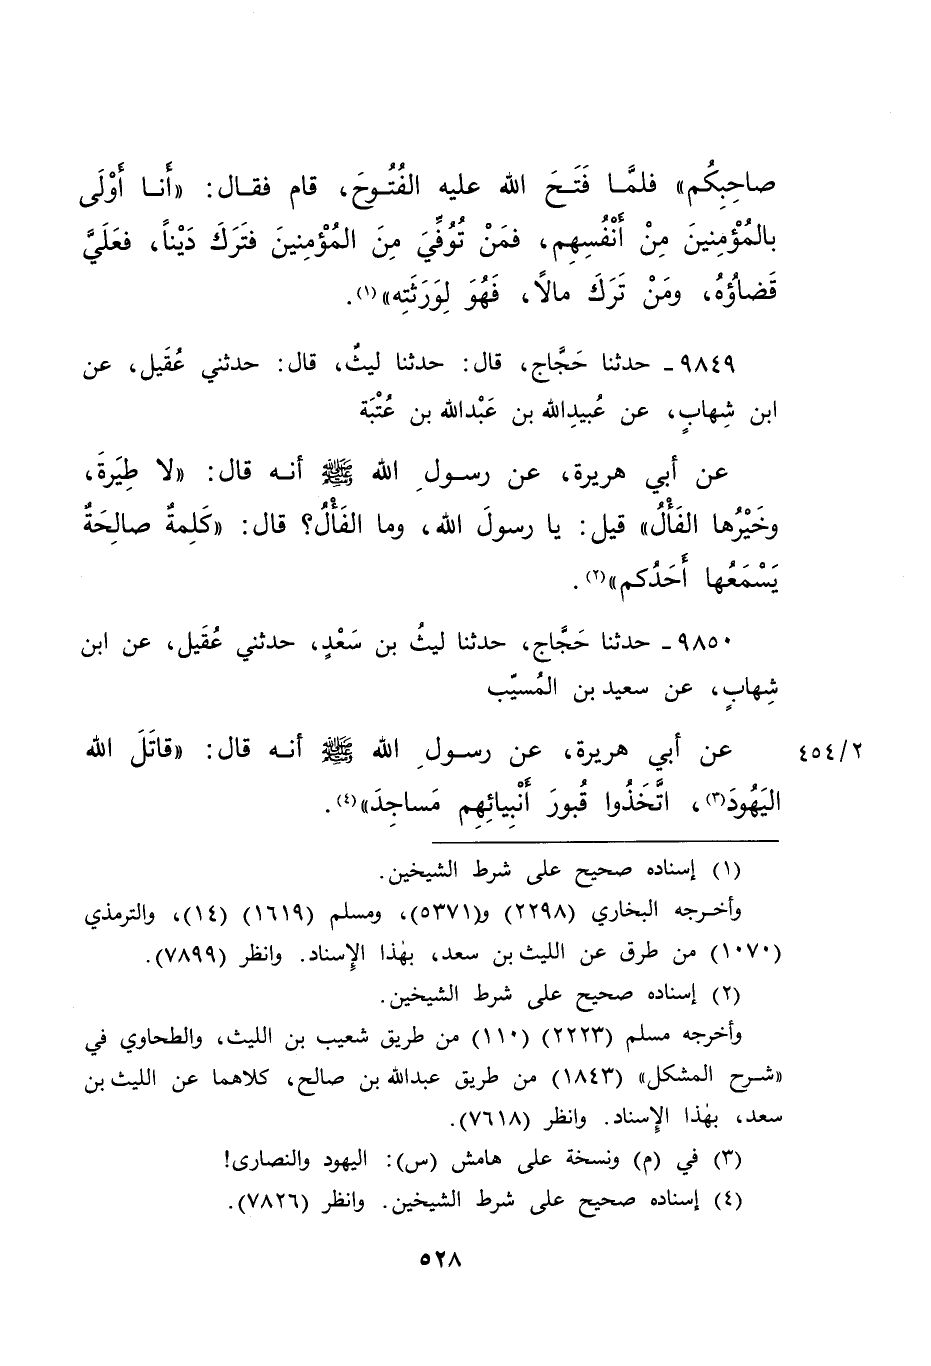 صاحِبِكُم» فلمَّا فَتَحَ الله عليه الفُتُوحَ، قام فقال: «أَنا أَوْلَى
بالمُؤْمِنينَ مِنْ أَنْفُسِهِم، فمَنْ تُوُفِّيَ مِنَ المُؤْمِنينَ فتَرَكَ دَيْناً، فعَلَيَّ
قَضاؤُهُ، ومَنْ تَرَكَ مالاً، فَهُوَ لِوَرَثَتِه»(١).
٩٨٤٩ـ حدثنا حَجَّاج، قال: حدثنا ليثٌ، قال: حدثني عُقَيل، عن
ابن شِهابٍ، عن عُبيدِالله بن عَبْدالله بن عُتْبَة
عن أبي هريرة، عن رسولِ الله ﷺ أنه قال: «لا طِيَرةَ،
وخَيْرُها الفَأْلُ» قيل: يا رسولَ الله، وما الفَأْلُ؟ قال: «كَلِمةٌ صالِحَةٌ
يَسْمَعُها أَحَدُكم»(٢).
٩٨٥٠ـ حدثنا حَجَّاج، حدثنا ليثُ بن سَعْدٍ، حدثني عُقَيل، عن ابن
شِهابٍ، عن سعيد بن المُسيّب
٤٥٤/٢ عن أبي هريرة، عن رسولِ الله ﷺ أنه قال: «قاتَلَ الله
اليَهُودَ(٣)، اتَّخَذُوا قُبورَ أَنْبِيائِهِم مَساجِدَ»(٤).
(١) إسناده صحيح على شرط الشيخين.
وأخرجه البخاري (٢٢٩٨) و(٥٣٧١)، ومسلم (١٦١٩) (١٤)، والترمذي
(١٠٧٠) من طرق عن الليث بن سعد، بهٰذا الإِسناد. وانظر (٧٨٩٩).
(٢) إسناده صحيح على شرط الشيخين.
وأخرجه مسلم (٢٢٢٣) (١١٠) من طريق شعيب بن الليث، والطحاوي في
«شرح المشكل» (١٨٤٣) من طريق عبدالله بن صالح، كلاهما عن الليث بن
سعد، بهٰذا الإِسناد. وانظر (٧٦١٨).
(٣) في (م) ونسخة على هامش (س): اليهود والنصارى!
(٤) إسناده صحيح على شرط الشيخين. وانظر (٧٨٢٦).
٥٢٨